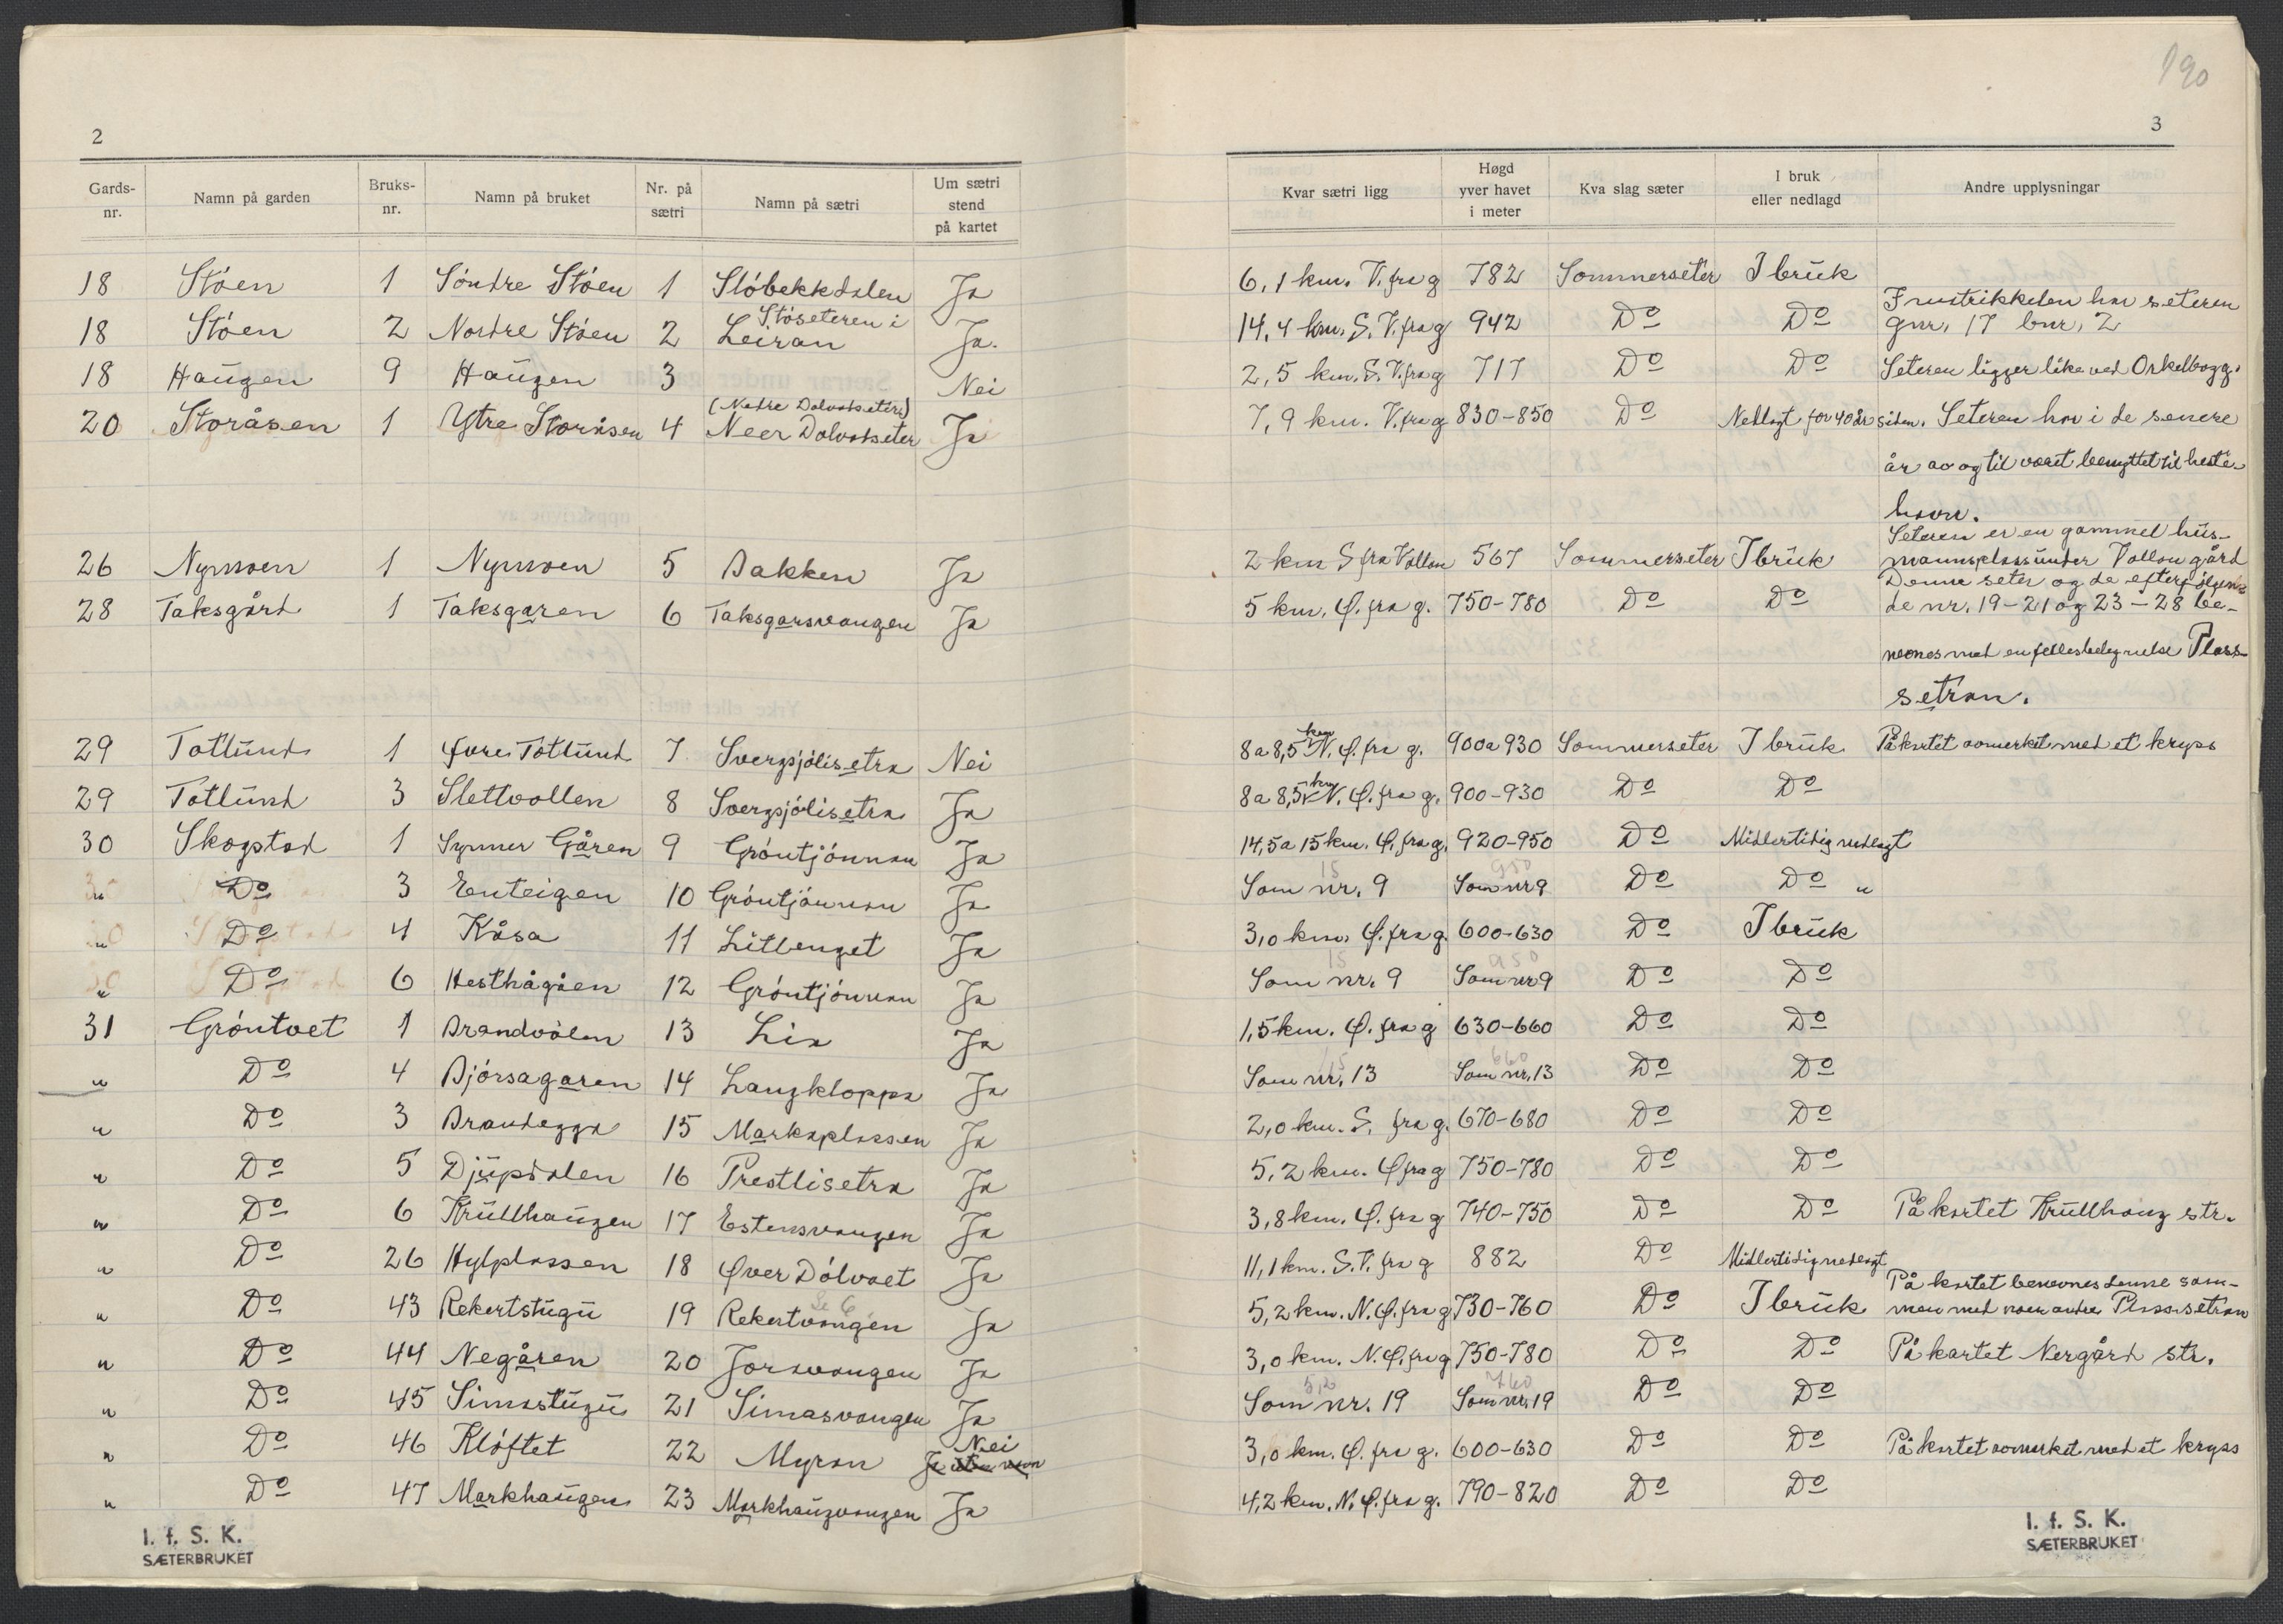 190
2
Gards-nr. Namn på garden Bruks-nr. Namn på bruket Nr. på sætri Namn på sætri Um sætri stend på kartet
18 Støen 1 Søndre Støen 1 Støbekkdalen Ja
18 Støen 2 Nordre Støen 2 Støseteren i Leiran Ja.
18 Haugen 9 Haugen 3 Nei
20 Storåsen 1 Ytre Storåsen 4 (Nedre Dalvadseter) Neer Dalvadseter Ja
26 Nymoen 1 Nymoen 5 Bakken Ja
28 Taksgård 1 Taksgaren 6 Taksgarsvangen Ja
29 Totlund 1 Øvre Totlund 7 Svergsjølisetra Nei
29 Totlund 3 Slettvollen 8 Svergsjølisetra Ja
30 Skogstad 1 Synner Gåren 9 Grøntjønnan Ja
" Do 3 Enteigen 10 Grøntjønnan Ja
" Do 4 Kåsa 11 Litlenget Ja
" Do 6 Hesthågåen 12 Grøntjønnan Ja
31 Grøntvet 1 Brandvolen 13 Lia Ja
" Do 4 Bjørsagaren 14 Langkloppa Ja
" Do 3 Brandegga 15 Markaplassen Ja
" Do 5 Djupdalen 16 Prestlisetra Ja
" Do 6 Krullhaugen 17 Estensvangen Ja
" Do 26 Hylplassen 18 Øver Dølvaet Ja
" Do 43 Rekertstugu 19 Rekertvangen Ja
" Do 44 Negåren 20 Joravangen Ja
" Do 45 Simastugu 21 Simasvangen Ja
" Do 46 Kløftet 22 Myran Nei
" Do 47 Markhaugen 23 Markhaugvangen Ja
I. f. S. K.
SÆTERBRUKET
3
Kvar sætri ligg Høgd yver havet i meter Kva slag sæter I bruk eller nedlagd Andre upplysningar
6,1 km. V. fra g 782 Sommerseter I bruk
14,4 km. S. V. fra g 942 Do Do Fru har seteren gnr. 17 bnr. 2
2,5 km. S. V. fra g 717 Do Do Seteren ligger like ved Orkelbogg.
7,9 km. V. fra g 830-850 Do Nedlagt for 40 år siden. Seteren har i de senere
år av og til været benyttet til heste-
havn.
2 km S fra Vollan 567 Sommerseter I bruk Seteren er en gammel hus-
mannsplass under Vollan gård
5 km. Ø. fra g. 750-780 Do Do Denne seter og de efterfølgen-
de nr. 19-21 og 23-28 be-
nevnes med en fellesbetegnelse Plass-
setran.
8 a 8,5 km N. Ø. fra g. 900 a 930 Sommerseter I bruk På kartet avmerket med et kryss
8 a 8,5 km N. Ø. fra g. 900-930 Do Do
14,5 a 15 km. Ø. fra g. 920-950 Do Midlertidig nedlagt
Som nr. 9 15 Som nr 9 950 Do Do "
3,0 km. Ø. fra g. 600-630 Do I bruk
Som nr. 9 15 Som nr 9 950 Do Do
1,5 km. Ø. fra g 630-660 Do Do
Som nr. 13 1,5 Som nr. 13 660 Do Do
2,0 km. S. fra g. 670-680 Do Do
5,2 km. Ø fra g 750-780 Do Do
3,8 km. Ø. fra g 740-750 Do Do På kartet Krullhaug str.
11,1 km. S. V. fra g 882 Do Midlertidig nedlagt
5,2 km. N. Ø. fra g 730-760 Do I bruk På kartet benevnes denne sam-
men med noen andre Plassetran
3,0 km. N. Ø. fra g 750-780 Do Do På kartet Nergård str.
Som nr. 19 5,2 Som nr. 19 760 Do Do
3,0 km. Ø. fra g. 600-630 Do Do På kartet avmerket med et kryss
4,2 km. N. Ø. fra g. 790-820 Do Do
I. f. S. K.
SÆTERBRUKET